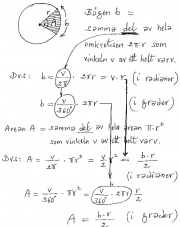 r
v
b
Bågen b =
samma del av hela
omkretsen 2π·r som
vinkeln v av ett helt varv.
Dvs: b = v/2π · 2π·r = v·r (i radianer)
b = v/360° · 2πr (i grader)
Arean A = samma del av hela arean π·r²
som vinkeln v av ett helt varv.
Dvs: A = v/2π · πr² = v/2 · r² = b·r/2 (i radianer)
A = v/360° · πr² = v/360° · 2πr · r/2
A = b·r/2 (i grader)